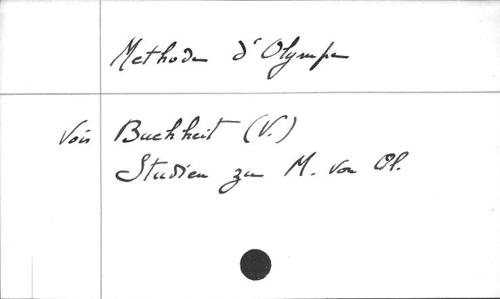 Methode d'Olympe
Voir Buchheit (V.)
Studien zu M. von Ol.